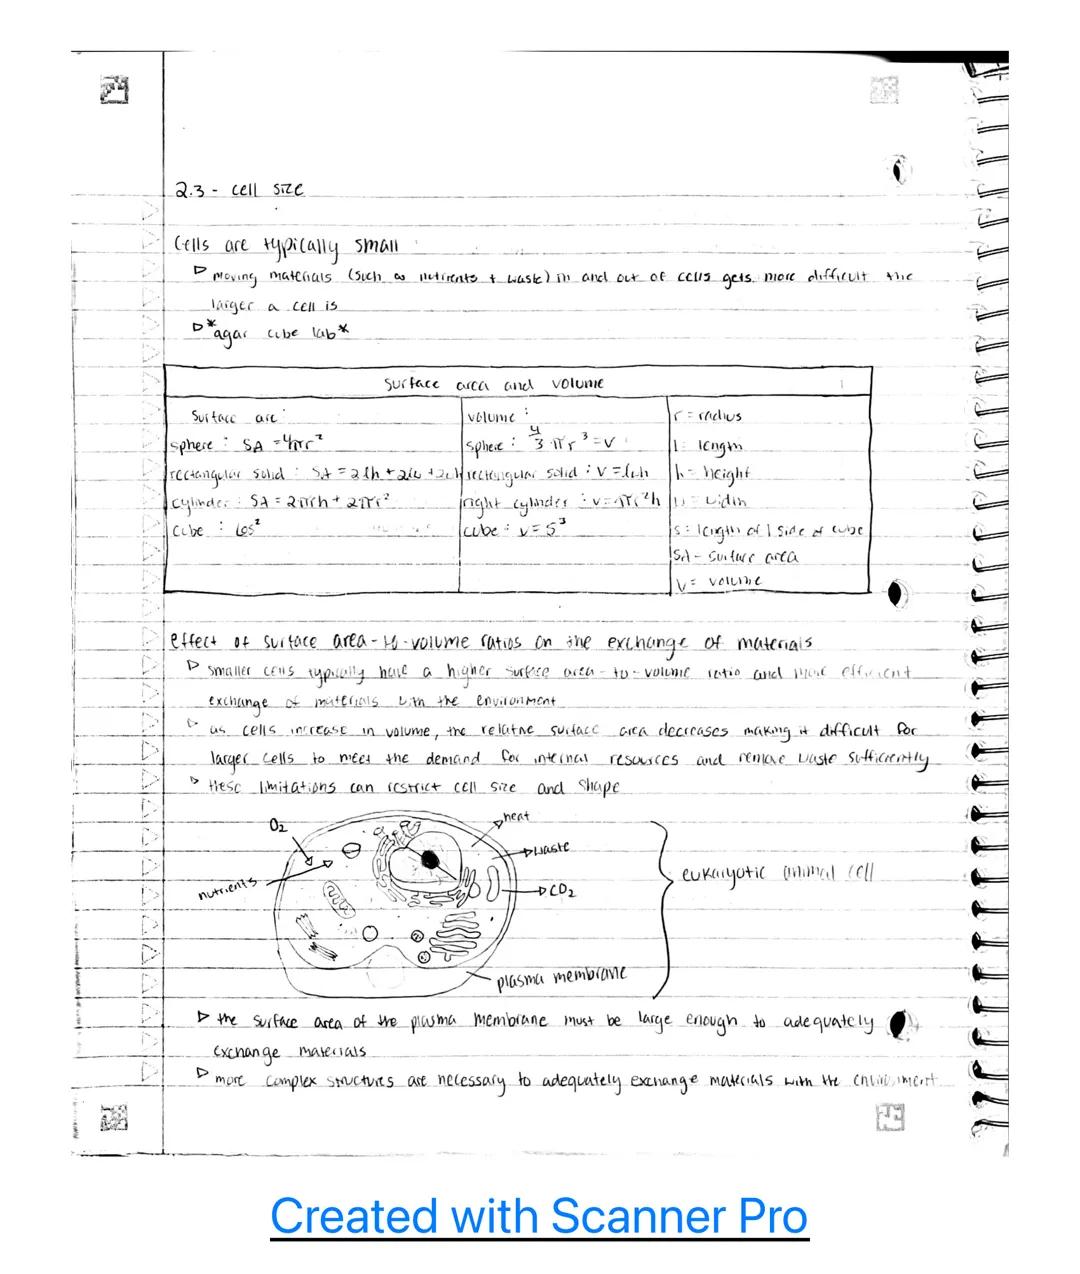 2.3 - cell size
Cells are typically small
▷ moving materials (such as nutrients + waste) in and out of cells gets more difficult the
larger a cell is
▷ *agar cube lab*
Surface area and volume
Surface are:
sphere: SA = 4πr²
rectangular solid: SA = 2lh + 2lw + 2wh
cylinder: SA = 2πrh + 2πr²
cube: 6s²
volume:
sphere: 4/3 πr³ = V
rectangular solid: V = lwh
right cylinder: V = πr²h
cube: V = s³
r = radius
l = length
h = height
w = width
s = length of 1 side of cube
SA - surface area
V = volume
effect of surface area-to-volume ratios on the exchange of materials
▷ smaller cells typically have a higher surface area-to-volume ratio and more efficient
exchange of materials with the environment
▷ as cells increase in volume, the relative surface area decreases making it difficult for
larger cells to meet the demand for internal resources and remove waste sufficiently
▷ these limitations can restrict cell size and shape
O₂
heat
waste
nutrients
CO₂
eukaryotic animal cell
plasma membrane
▷ the surface area of the plasma membrane must be large enough to adequately
exchange materials
▷ more complex structures are necessary to adequately exchange materials with the environment
Created with Scanner Pro